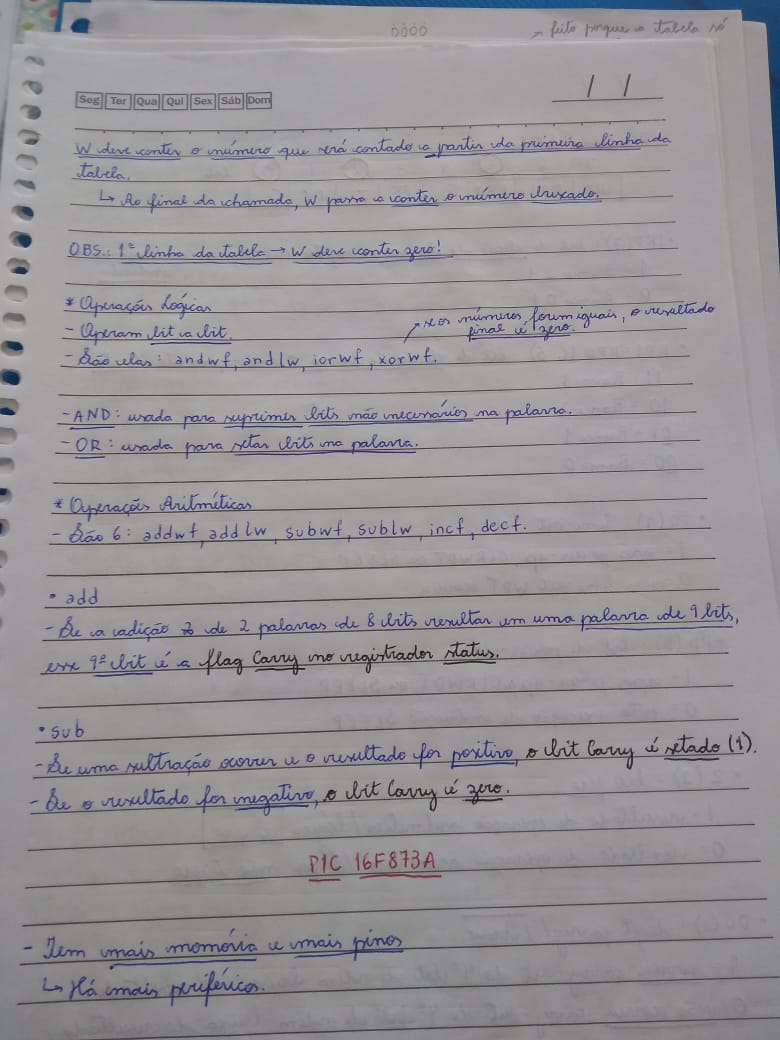 → feito porque a tabela só
Seg Ter Qua Qui Sex Sáb Dom
/ /
W deve conter o número que será contado a partir da primeira linha da
tabela.
↳ Ao final da chamada, W passa a conter o número buscado.
OBS.: 1ª linha da tabela → W deve conter zero!
* Operações Lógicas
- Operam bit a bit.
↗ se os números forem iguais, o resultado
final é zero.
- São elas: andwf, andlw, iorwf, xorwf.
- AND: usada para suprimir bits não necessários na palavra.
- OR: usada para setar bits na palavra.
* Operações Aritméticas
- São 6: addwf, addlw, subwf, sublw, incf, decf.
• add
- Se a adição de 2 palavras de 8 bits resultar em uma palavra de 9 bits,
esse 9º bit é a flag Carry no registrador status.
• sub
- Se uma subtração ocorrer e o resultado for positivo, o bit Carry é setado (1).
- Se o resultado for negativo, o bit Carry é zero.
PIC 16F873A
- Tem mais memória e mais pinos
↳ Há mais periféricos.